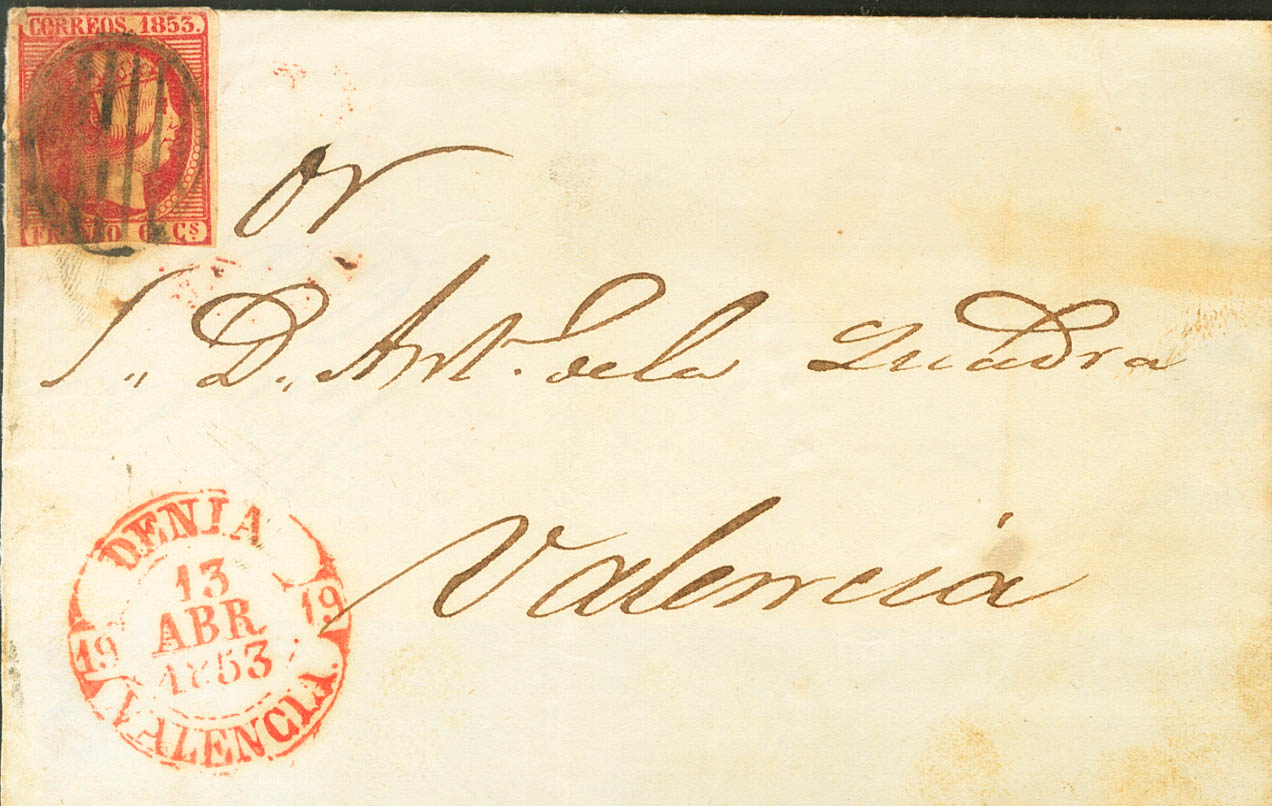 CORREOS. 1853.
FRANCO 6 Cs
or
S. D. Ant. de la Quadra
Valencia
DENIA
13
ABR
1853
19 19
VALENCIA.